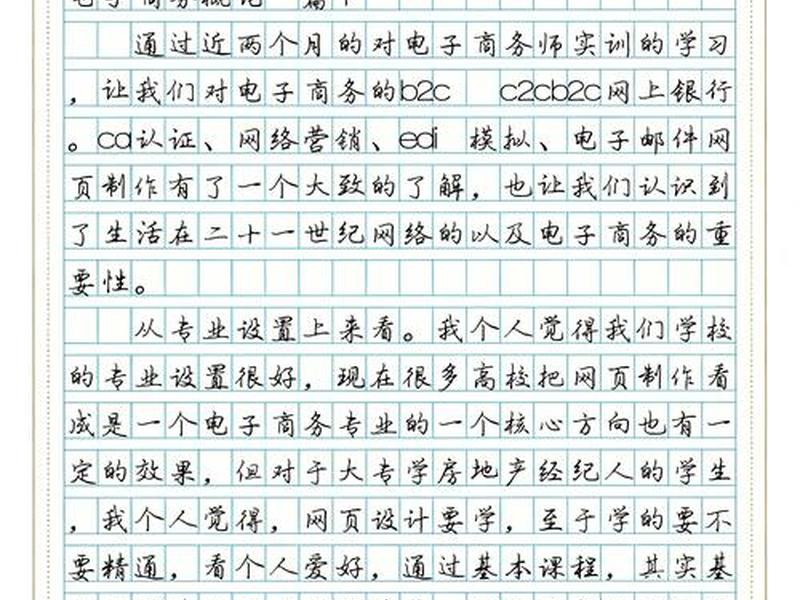 电子商务概论 篇
通过近两个月的对电子商务师实训的学习
，让我们对电子商务的b2c c2cb2c网上银行
。ca认证、网络营销、edi 模拟、电子邮件网
页制作有了一个大致的了解，也让我们认识到
了生活在二十一世纪网络的以及电子商务的重
要性。
从专业设置上来看。我个人觉得我们学校
的专业设置很好，现在很多高校把网页制作看
成是一个电子商务专业的一个核心方向也有一
定的效果，但对于大专学房地产经纪人的学生
，我个人觉得，网页设计要学，至于学的要不
要精通，看个人爱好，通过基本课程，其实基